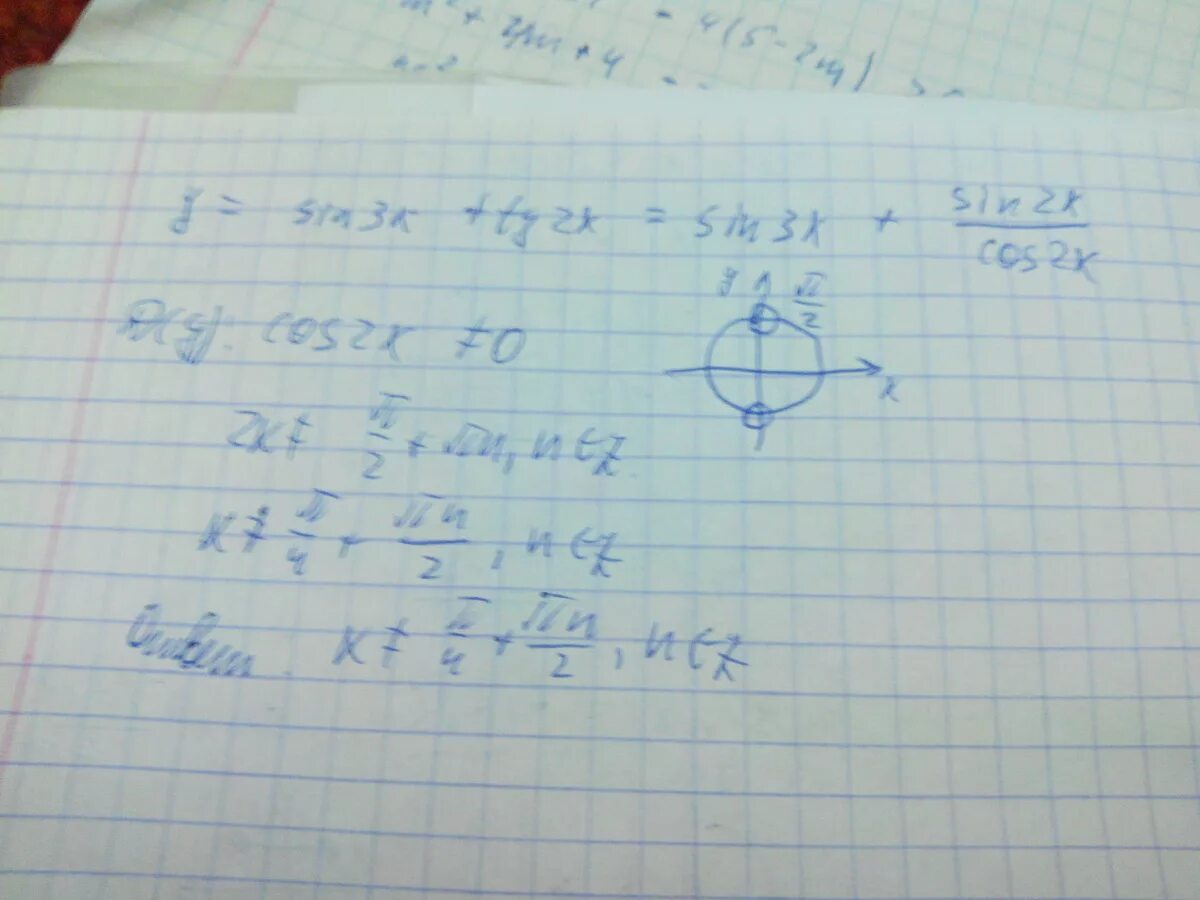 + 2m + 4 = 4(5 - 2m)
y = sin3x + tg2x = sin3x + sin2x/cos2x
y π/2
x
D(y): cos2x ≠ 0
2x ≠ π/2 + πn, n ∈ Z
x ≠ π/4 + πn/2, n ∈ Z
Ответ: x ≠ π/4 + πn/2, n ∈ Z